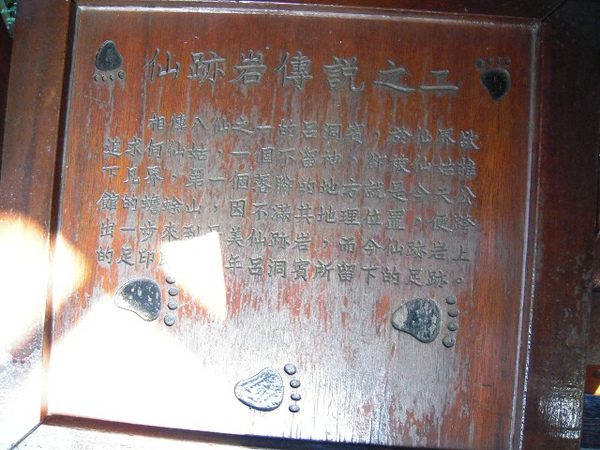 仙跡岩傳説之二
相傳八仙之一的呂洞賓，於仙界欲
求何仙姑，一個不留神，卻被仙姑
下界，第一個落腳的地方，就是今天公
館的蟾蜍山，因不滿其地理位置，便跨
出一步來到美仙跡岩，而今仙跡岩上
的足印年呂洞賓所留下的足跡。